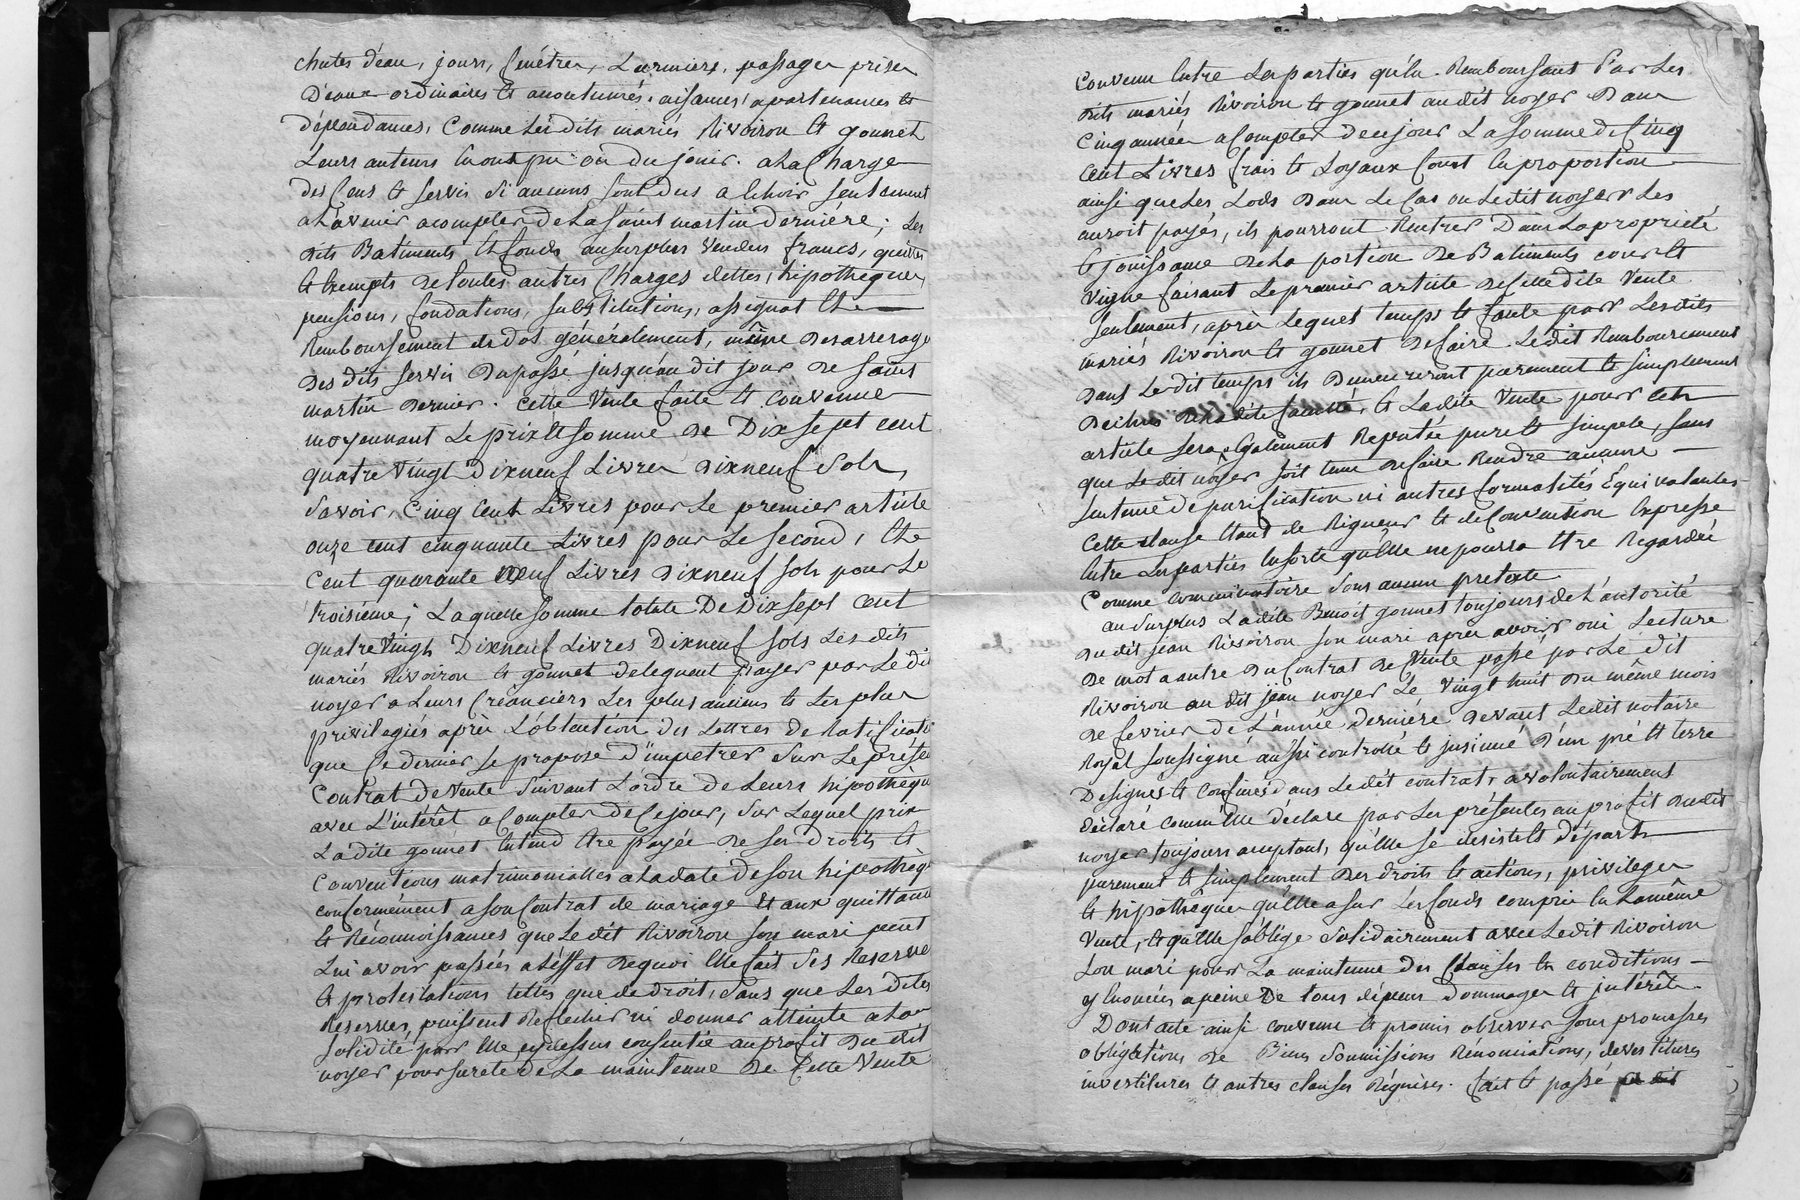 chutes d'eau, jours, fenétres, Larmiers, passages prises
D'eaux ordinaires & acoutumés, aisances, apartenances &
dépendances, Comme Lesdits mariés Rivoiron & gonnet
Leurs auteurs en ont pu ou du jouir. a La Charge
des Cens & servis si aucuns sont dus a Echoir seulement
a L'avenir acompter de La saint martin derniére; Les
dits Batiments & fonds ausurplus vendus francs, quittes
& Exempts de toutes autres Charges dettes, hipotheques,
pensions, fondations, substitutions, assignat &
Remboursement de Dot généralement, même des arrerages
des dits servis du passé jusqu'au dit jour de saint
martin dernier. Cette Vente faite & convenue
moyennant Le prix & somme de Dix sept cent
quatre vingt Dixneuf Livres dixneuf sols,
Savoir, Cinq Cent Livres pour Le premier article
onze cent cinquante Livres pour Le second, &
Cent quarante neuf Livres dixneuf sols pour Le
troisiéme; Laquelle somme totale De Dix sept Cent
quatre Vingt Dixneuf Livres Dixneuf sols Les dits
mariés Rivoiron & gonnet deleguent payer par Le dit
noyer a Leurs Créanciers Les plus anciens & Les plus
privilegiés après L'obtention des Lettres de Ratificati
que Ce dernier se propose D'impetrer sur Le présen
Contrat de vente Suivant L'ordre de Leurs hipothèqu
avec L'intérêt a Compter de Ce jour, sur Lequel prix
La dite gonnet Entend être payée de ses droits &
Conventions matrimonialles a La date De son hipothèq
conformément a son Contrat de mariage & aux quittance
& Réconnoissances que Le dit Rivoiron son mari peut
Lui avoir passées a L'éffet de quoi Elle fait ses Reserve
& protestations telles que de droit, sans que Les Dites
Reserves, puissent Reflechir ni donner atteinte a La
solidité par Elle cydessus consentie au profit du dit
noyer pour sureté de La maintenue de Cette Vente
Convenu Entre Les parties qu'En Remboursant Par Les
dits mariés Rivoiron & gonnet au dit noyer Dans
Cinq années a Compter de ce jour La somme de Cinq
Cent Livres frais & Loyaux Cout En proportion
ainsi que Les Lods Dans Le Cas ou Le dit noyer Les
auroit payés, ils pourront Rentrer Dans La propriété
& jouissance de La portion de Batiments cour &
vigne faisant Le premier article de Cette dite Vente
seulement, après Lequel temps & faute par Lesdits
mariés Rivoiron & gonnet de faire Le dit Remboursement
Dans Le dit temps ils Demeureront purement & simplement
Déchus de La dite faculté, & La dite Vente pour cet
article sera Egalement Reputée pure & simple, sans
que Le dit noyer soit tenu de faire Rendre aucune
sentence de purification ni autres formalités Equivalantes
Cette clause étant de Rigueur & de Convention Expresse
Entre Les parties En sorte qu'elle ne pourra être Regardée
Comme comminatoire sous aucun pretexte
au surplus La dite Benoit gonnet toujours de L'autorité
du dit jean Rivoiron son mari après avoir oui Lecture
de mot a autre du Contrat de Vente passé par Le dit
Rivoiron au dit jean noyer Le vingt huit du même mois
de fevrier de L'année derniére devant Le dit notaire
Royal soussigné aussi controllé & jnsinué D'un pré & terre
Désignés & Confinés dans Le dit contrat, a volontairement
déclaré comme Elle déclare par Les présentes au profit du dit
noyer toujours acceptant, qu'Elle se desiste & départ
purement & simplement des droits & actions, privileges
& hipothèques qu'Elle a sur Les fonds compris En La même
Vente, & qu'Elle s'oblige solidairement avec Le dit Rivoiron
son mari pour La maintenue des Clauses & conditions
y Enoncées a peine de tous dépens Dommages & intérêts.
Dont acte ainsi convenu & promis observer sous promesses
obligations de Biens soumissions Rénonciations, devestitures
investitures & autres clauses Réquises. fait & passé